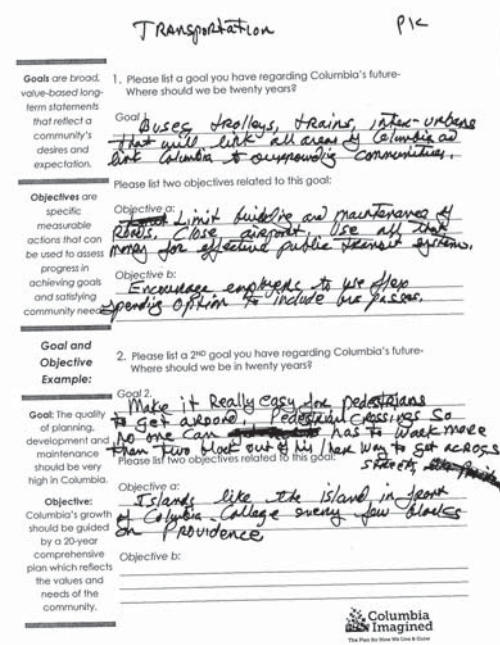 TRANSPORTATION
PIC
Goals are broad,
value-based long-
term statements
that reflect a
community's
desires and
expectation.
Objectives are
specific
measurable
actions that can
be used to assess
progress in
achieving goals
and satisfying
community needs
Goal and
Objective
Example:
Goal: The quality
of planning,
development and
maintenance
should be very
high in Columbia.
Objective:
Columbia's growth
should be guided
by a 20-year
comprehensive
plan which reflects
the values and
needs of the
community.
1. Please list a goal you have regarding Columbia's future-
Where should we be twenty years?
Goal
Buses, trolleys, trains, inter-urbans
that will link all areas of Columbia ad
link Columbia to surrounding communities.
Please list two objectives related to this goal:
Objective a:
Limit building and maintenance of
ROADS. Close airport. Use all that
money for effective public transit systems.
Objective b:
Encourage employers to use flex
spending option to include bus passes.
2. Please list a 2ND goal you have regarding Columbia's future-
Where should we be in twenty years?
Goal 2.
Make it Really easy for pedestrians
to get around. Pedestrian crossings so
no one can has to walk more
than two block out of his/her way to get across
streets,
Please list two objectives related to this goal:
Objective a:
Islands like the island in front
of Columbia College every few blocks
on Providence
Objective b:
Columbia
Imagined
The Plan for How We Live & Grow